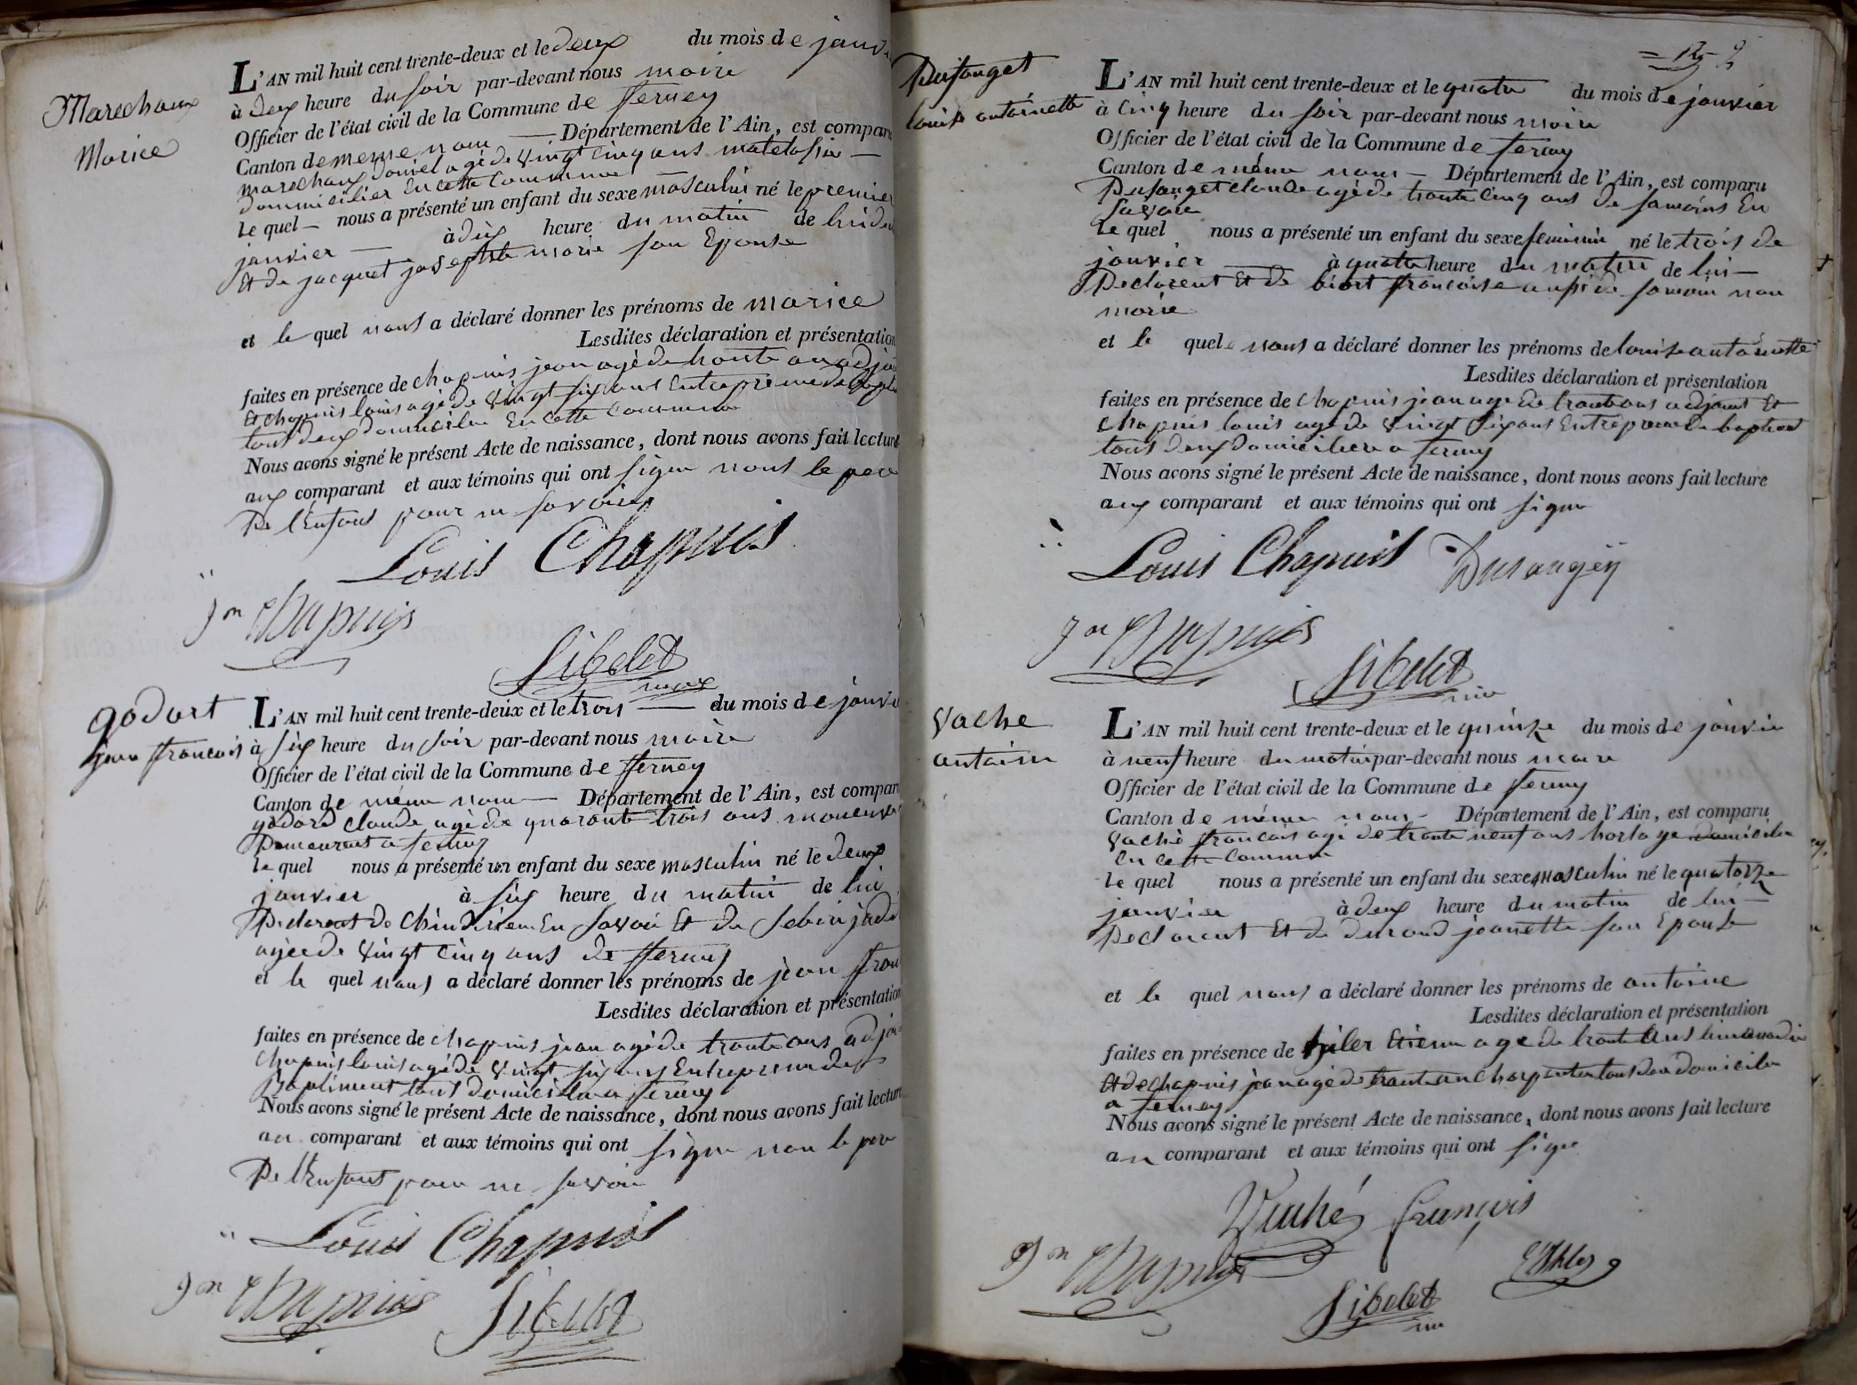 Marechaux
Marice
L'AN mil huit cent trente-deux et le deux du mois de janvi
à deux heure du soir par-devant nous maire
Officier de l'état civil de la Commune de fferney
Canton de meme nom — Département de l'Ain, est compar
marechaux daniel agé de vingt cinq ans matelasier —
dommicilier En cette Commune
le quel — nous a présenté un enfant du sexe masculin né le premier
janvier — à dix heure du matin de lui de
Et de jacquet josephte marie son Epouse
et le quel nous a déclaré donner les prénoms de marice
Lesdites déclaration et présentation
faites en présence de chapuis jean agé de trante an adj
Et chapuis louis agé de vingt six ans Entrepreneur de
tout deux domicilier En cette Commune
Nous avons signé le présent Acte de naissance, dont nous avons fait lecture
aux comparant et aux témoins qui ont signe nous le per
De l'Enfant pour ne savoir
Louis Chapuis
jn Chapuis
Sibelet
godart
jean francois
L'AN mil huit cent trente-deux et le trois — du mois de janvi
à six heure du soir par-devant nous maire
Officier de l'état civil de la Commune de fferney
Canton de même nom — Département de l'Ain, est compar
godard claude agé de quarante trois ans
Demeurant a ferney
le quel nous a présenté un enfant du sexe masculin né le deux
janvier à six heure du matin de lui
Declarent de En Savoie Et de
agée de vingt cinq ans de fferney
et le quel nous a déclaré donner les prénoms de jean fran
Lesdites déclaration et présentation
faites en présence de chapuis jean agé de trante ans adj
chapuis louis agé de vingt six ans Entrepreneur de
Batiment tout domicilier a ferney
Nous avons signé le présent Acte de naissance, dont nous avons fait lecture
au comparant et aux témoins qui ont signe non le per
De l'Enfant pour ne savoir
Louis Chapuis
jn Chapuis
Sibelet
louise antoinette
L'AN mil huit cent trente-deux et le quatre du mois de janvier
à cinq heure du soir par-devant nous maire
Officier de l'état civil de la Commune de ferney
Canton de même nom — Département de l'Ain, est comparu
claude agé de trante cinq ans de samoins En
Savoie
le quel nous a présenté un enfant du sexe feminin né le trois de
janvier — à quatre heure du matin de lui —
Declarent Et de françoise aussi de samoin non
marié
et le quel nous a déclaré donner les prénoms de louise antoinette
Lesdites déclaration et présentation
faites en présence de chapuis jean age de trante ans adjoint Et
chapuis louis agé de vingt six ans Entrepreneur de
tous deux domicilier a ferney
Nous avons signé le présent Acte de naissance, dont nous avons fait lecture
aux comparant et aux témoins qui ont signe
Louis Chapuis
jn Chapuis
Sibelet
vache
antoine
L'AN mil huit cent trente-deux et le quinze du mois de janvier
à neuf heure du matin par-devant nous maire
Officier de l'état civil de la Commune de ferney
Canton de même nom — Département de l'Ain, est comparu
vaché francois agé de trante neuf ans domicilier
En cette Commune
le quel nous a présenté un enfant du sexe masculin né le quatorze
janvier à deux heure du matin de lui —
Declarent Et de durand jeanette son Epouse
et le quel nous a déclaré donner les prénoms de antoine
Lesdites déclaration et présentation
faites en présence de Etienne agé de trante ans
Et de chapuis jean agé de trante an charpentier tous deux domicilier
a ferney
Nous avons signé le présent Acte de naissance, dont nous avons fait lecture
au comparant et aux témoins qui ont signe
Vaché françois
jn Chapuis
Sibelet